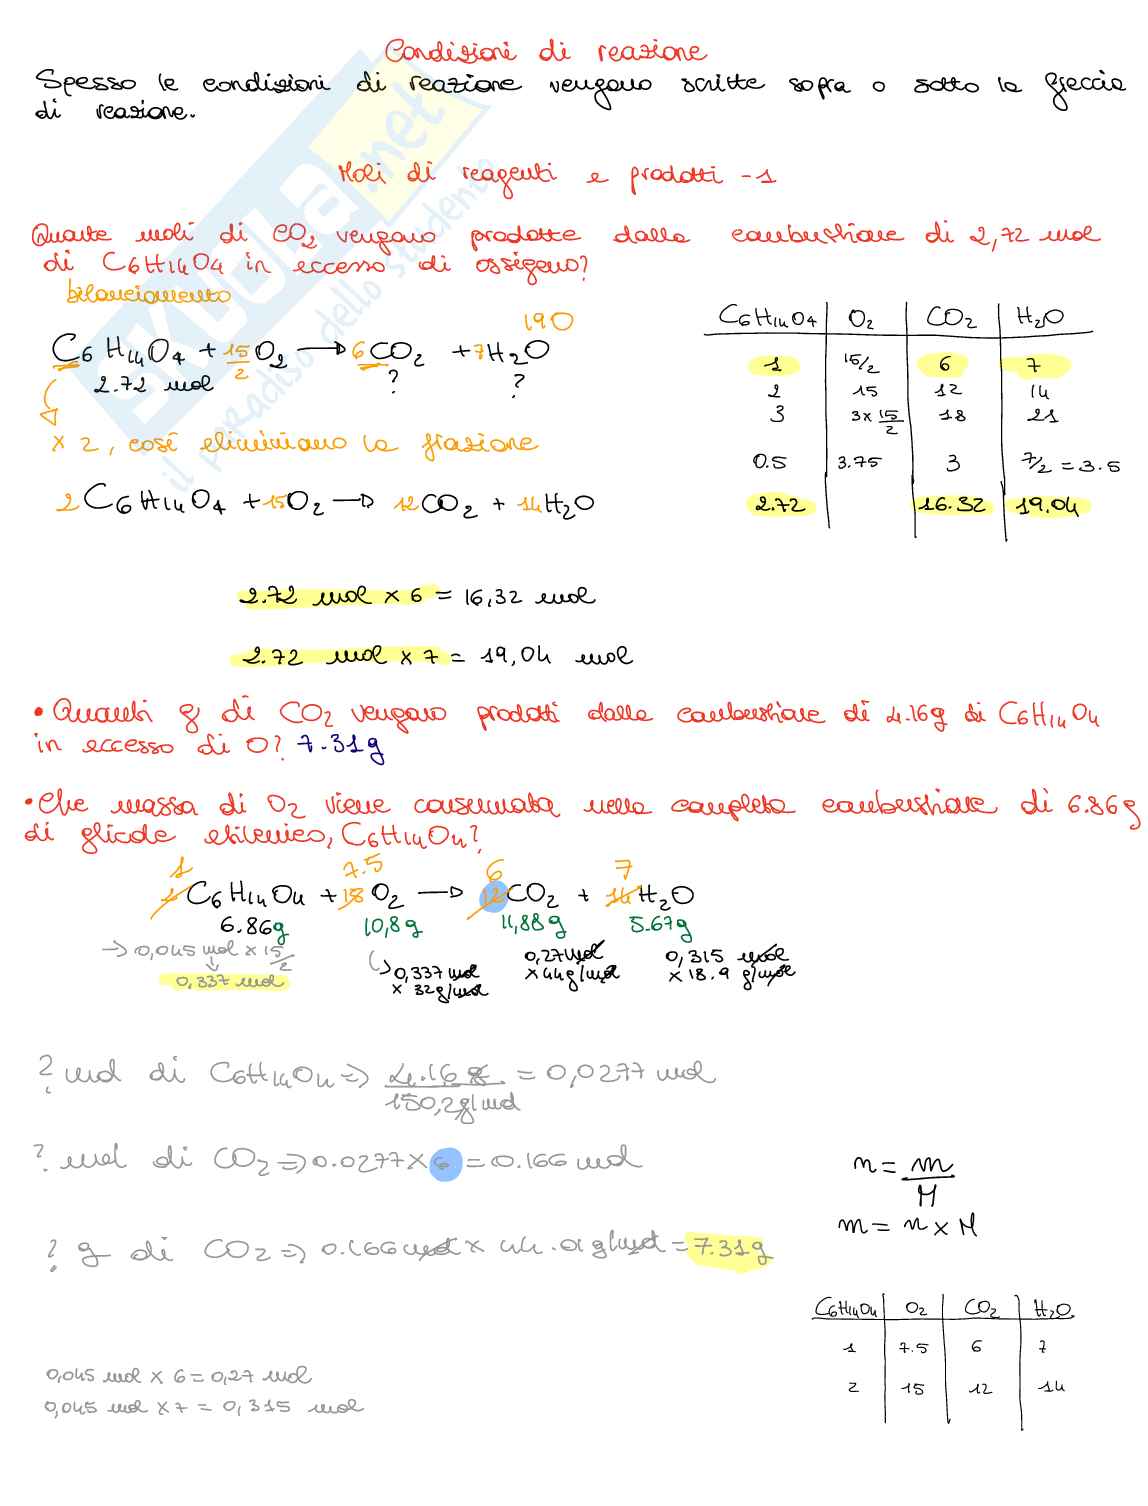 Condizioni di reazione
Spesso le condizioni di reazione vengono scritte sopra o sotto la freccia
di reazione.
Moli di reagenti e prodotti - 1
Quante moli di CO2 vengono prodotte dalla combustione di 2,72 mol
di C6H14O4 in eccesso di ossigeno?
bilanciamento
19O
C6H14O4 + 15/2 O2 → 6CO2 + 7H2O
2.72 mol ? ?
x 2, così eliminiamo la frazione
2C6H14O4 + 15O2 → 12CO2 + 14H2O
C6H14O4 O2 CO2 H2O
1 15/2 6 7
2 15 12 14
3 3x 15/2 18 21
0.5 3.75 3 7/2 = 3.5
2.72 16.32 19.04
2.72 mol x 6 = 16,32 mol
2.72 mol x 7 = 19,04 mol
• Quanti g di CO2 vengono prodotti dalla combustione di 4.16g di C6H14O4
in eccesso di O? 7.31g
• Che massa di O2 viene consumata nella completa combustione di 6.86g
di glicole etilenico, C6H14O4?
1 7.5 6 7
C6H14O4 + 15 O2 → 12CO2 + 14H2O
6.86g 10,8g 11,88g 5.67g
→ 0,045 mol x 15/2
0,337 mol
0,337 mol x 32g/mol
0,27mol x 44g/mol
0,315 mol x 18.9 g/mol
? mol di C6H14O4 ⇒ 4.16g / 150,2g/mol = 0,0277 mol
? mol di CO2 ⇒ 0.0277 x 6 = 0.166 mol
? g di CO2 ⇒ 0.166mol x 44.01g/mol = 7.31g
n = m/M
m = n x M
C6H14O4 O2 CO2 H2O
1 7.5 6 7
2 15 12 14
0,045 mol x 6 = 0,27 mol
0,045 mol x 7 = 0,315 mol
SKUOLA.net
il paradiso dello studente